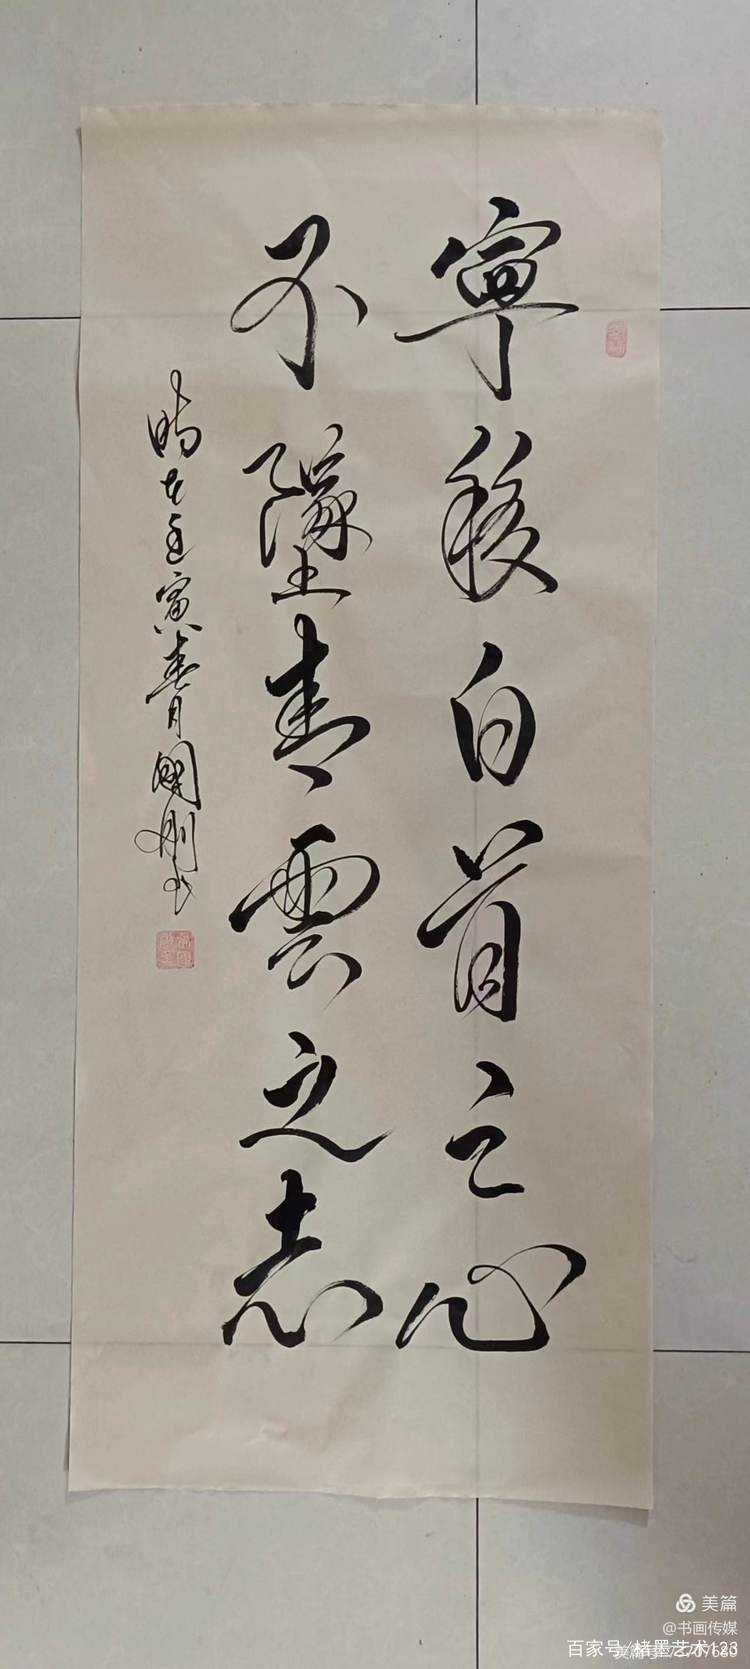 寧移白首之心
不墜青雲之志
時在壬寅春月國剛书
美篇
@书画传媒
百家号/楮墨艺术123